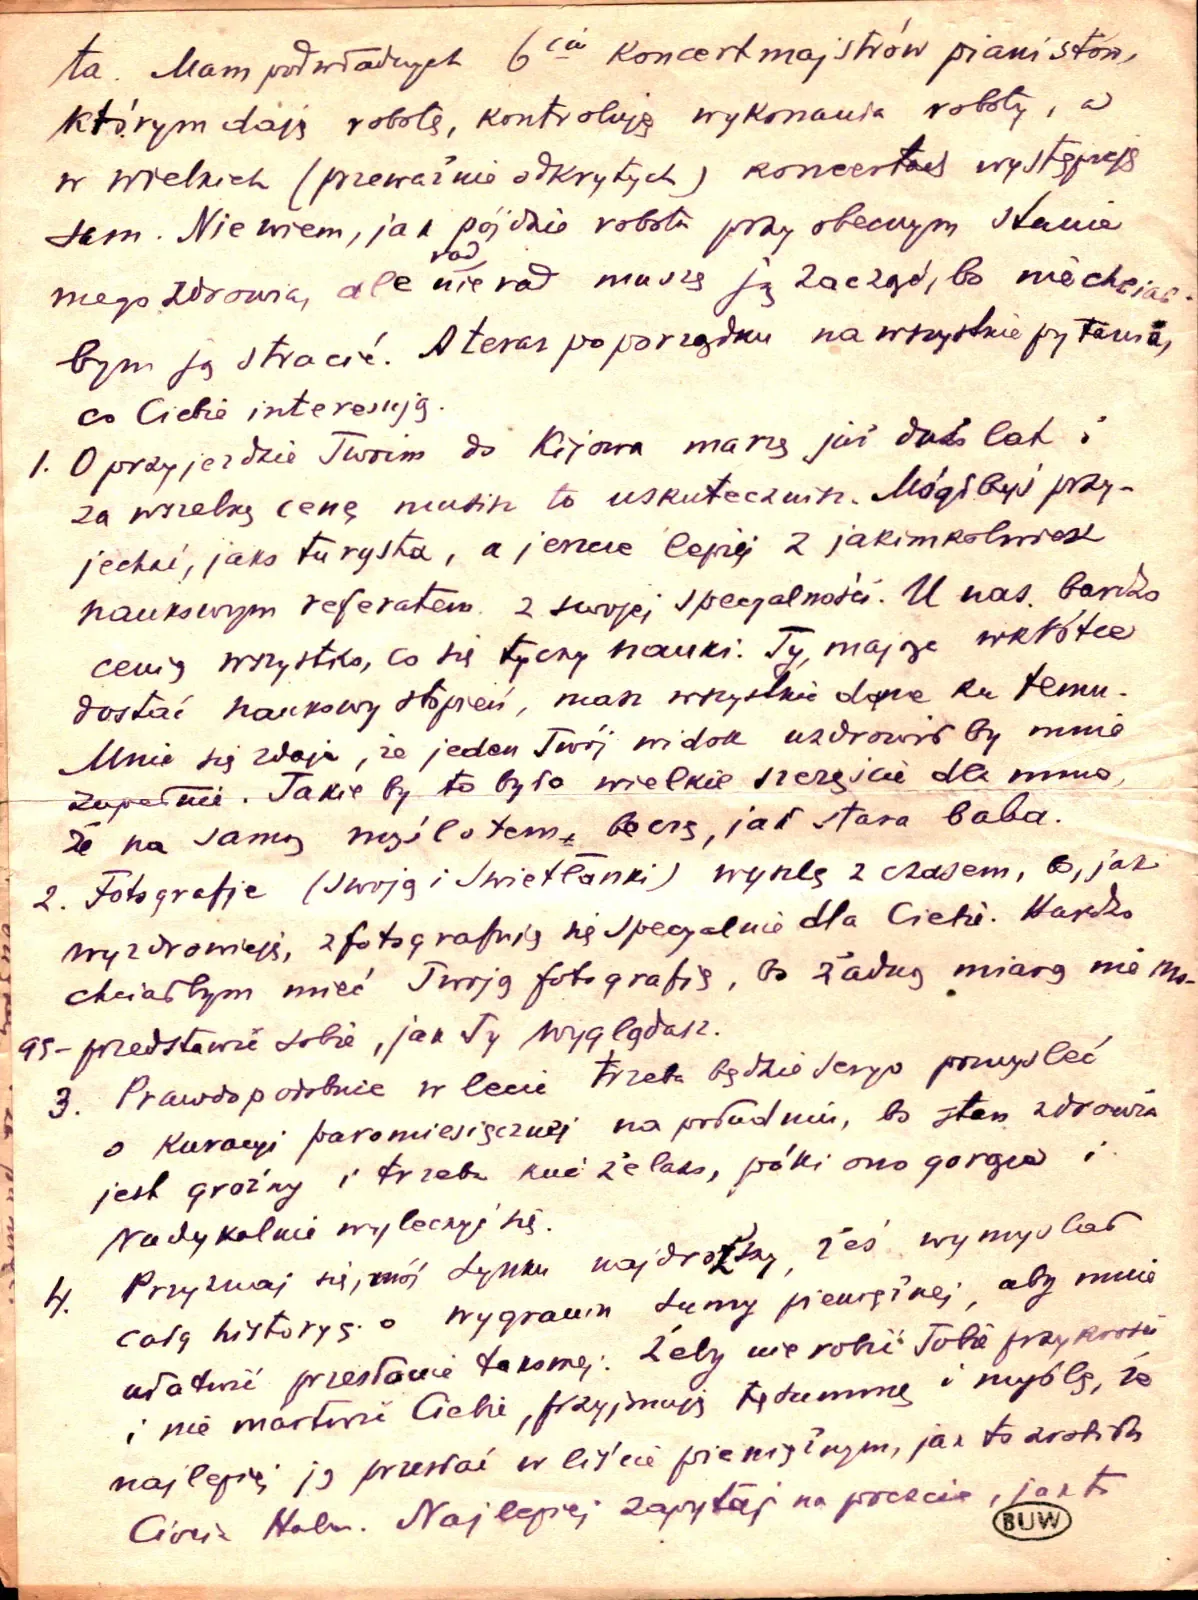 ta. Mam podwładnych 6 ciu koncertmajstrów pianistów,
którym daję robotę, kontroluję wykonania roboty, a
w wielkich (przeważnie odkrytych) koncertach występuję
sam. Nie wiem, jak pójdzie robota przy obecnym stanie
mego zdrowia, ale rad nierad muszę ją zacząć, bo niechciał-
bym ją stracić. A teraz po porządku na wszystkie pytania,
co Ciebie interesują.
1. O przyjeździe Twoim do Kijowa marzę już dużo lat i
za wszelką cenę musisz to uskutecznić. Mógłbyś przy-
jechać, jako turysta, a jeszcze lepiej z jakimkolwiek
naukowym referatem z swojej specjalności. U nas bardzo
cenią wszystko, co się tyczy nauki. Ty, mając wkrótce
dostać naukowy stopień, masz wszystkie dane ku temu.
Mnie się zdaje, że jeden Twój widok uzdrowił by mnie
zupełnie. Takie by to było wielkie szczęście dla mnie,
że na samą myśl o tem, beczę, jak stara baba.
2. Fotografje (swoją i Swietłanki) wyszlę z czasem, bo, jak
wyzdrowieję, zfotografuję się specjalnie dla Ciebie. Bardzo
chciałbym mieć Twoją fotografię, bo żadną miarą nie mo-
gę przedstawić sobie, jak Ty wyglądasz.
3. Prawdopodobnie w lecie trzeba będzie seryo pomyśleć
o kuracyi paromiesięcznej na południu, bo stan zdrowia
jest groźny i trzeba kuć żelazo, póki ono gorące i
radykalnie wyleczyć się.
4. Przyznaj się, mój synku najdroższy, żeś wymyślał
całą historyę o wygraniu sumy pieniężnej, aby mnie
ułatwić przesłanie takowej. Żeby nie robić Tobie przykrości
i nie martwić Ciebie, przyjmuję tę summę i myślę, że
najlepiej ją przesłać w liście pieniężnym, jak to zrobiła
Ciocia Hala. Najlepiej zapytaj na poczcie, jak to
BUW